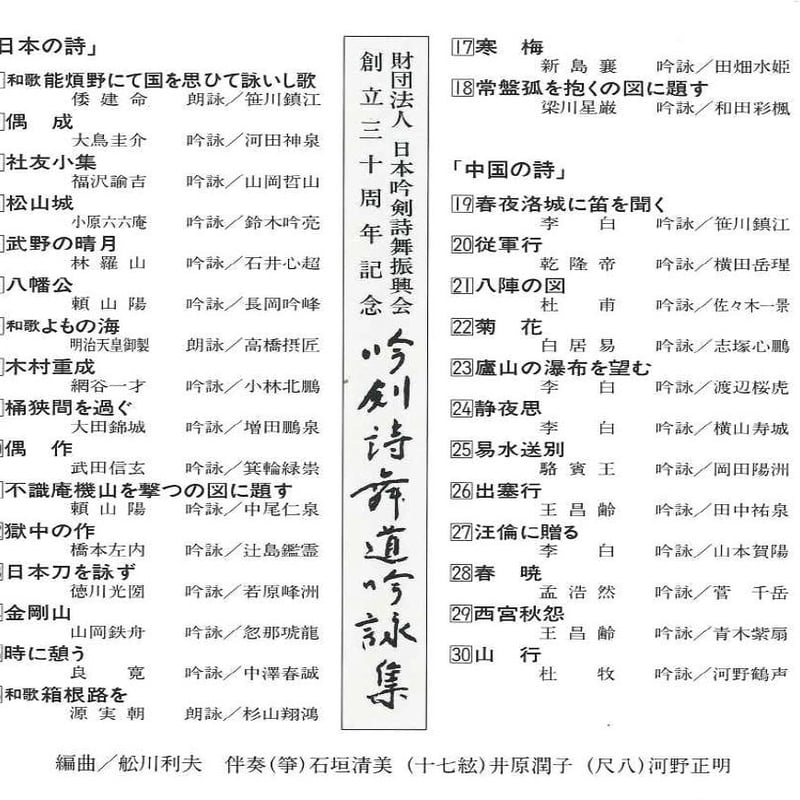 日本の詩」
和歌能煩野にて国を思ひて詠いし歌
倭建命 朗詠／笹川鎮江
偶 成
大鳥圭介 吟詠／河田神泉
社友小集
福沢諭吉 吟詠／山岡哲山
松山城
小原六六庵 吟詠／鈴木吟亮
武野の晴月
林羅山 吟詠／石井心超
八幡公
頼山陽 吟詠／長岡吟峰
和歌よもの海
明治天皇御製 朗詠／高橋摂匠
木村重成
網谷一才 吟詠／小林北鵬
桶狭間を過ぐ
大田錦城 吟詠／増田鵬泉
偶 作
武田信玄 吟詠／箕輪緑崇
不識庵機山を撃つの図に題す
頼山陽 吟詠／中尾仁泉
獄中の作
橋本左内 吟詠／辻島鑑霊
日本刀を詠ず
徳川光圀 吟詠／若原峰洲
金剛山
山岡鉄舟 吟詠／忽那琥龍
時に憩う
良 寛 吟詠／中澤春誠
和歌箱根路を
源実朝 朗詠／杉山翔鴻
財団法人 日本吟剣詩舞振興会
創立三十周年記念
吟剣詩舞道吟詠集
17寒 梅
新島襄 吟詠／田畑水姫
18常盤孤を抱くの図に題す
梁川星巌 吟詠／和田彩楓
「中国の詩」
19春夜洛城に笛を聞く
李 白 吟詠／笹川鎮江
20従軍行
乾隆帝 吟詠／横田岳瑆
21八陣の図
杜 甫 吟詠／佐々木一景
22菊 花
白居易 吟詠／志塚心鵬
23廬山の瀑布を望む
李 白 吟詠／渡辺桜虎
24静夜思
李 白 吟詠／横山寿城
25易水送別
駱賓王 吟詠／岡田陽洲
26出塞行
王昌齢 吟詠／田中祐泉
27汪倫に贈る
李 白 吟詠／山本賀陽
28春 暁
孟浩然 吟詠／菅 千岳
29西宮秋怨
王昌齢 吟詠／青木紫扇
30山 行
杜 牧 吟詠／河野鶴声
編曲／舩川利夫 伴奏(箏)石垣清美 (十七絃)井原潤子 (尺八)河野正明